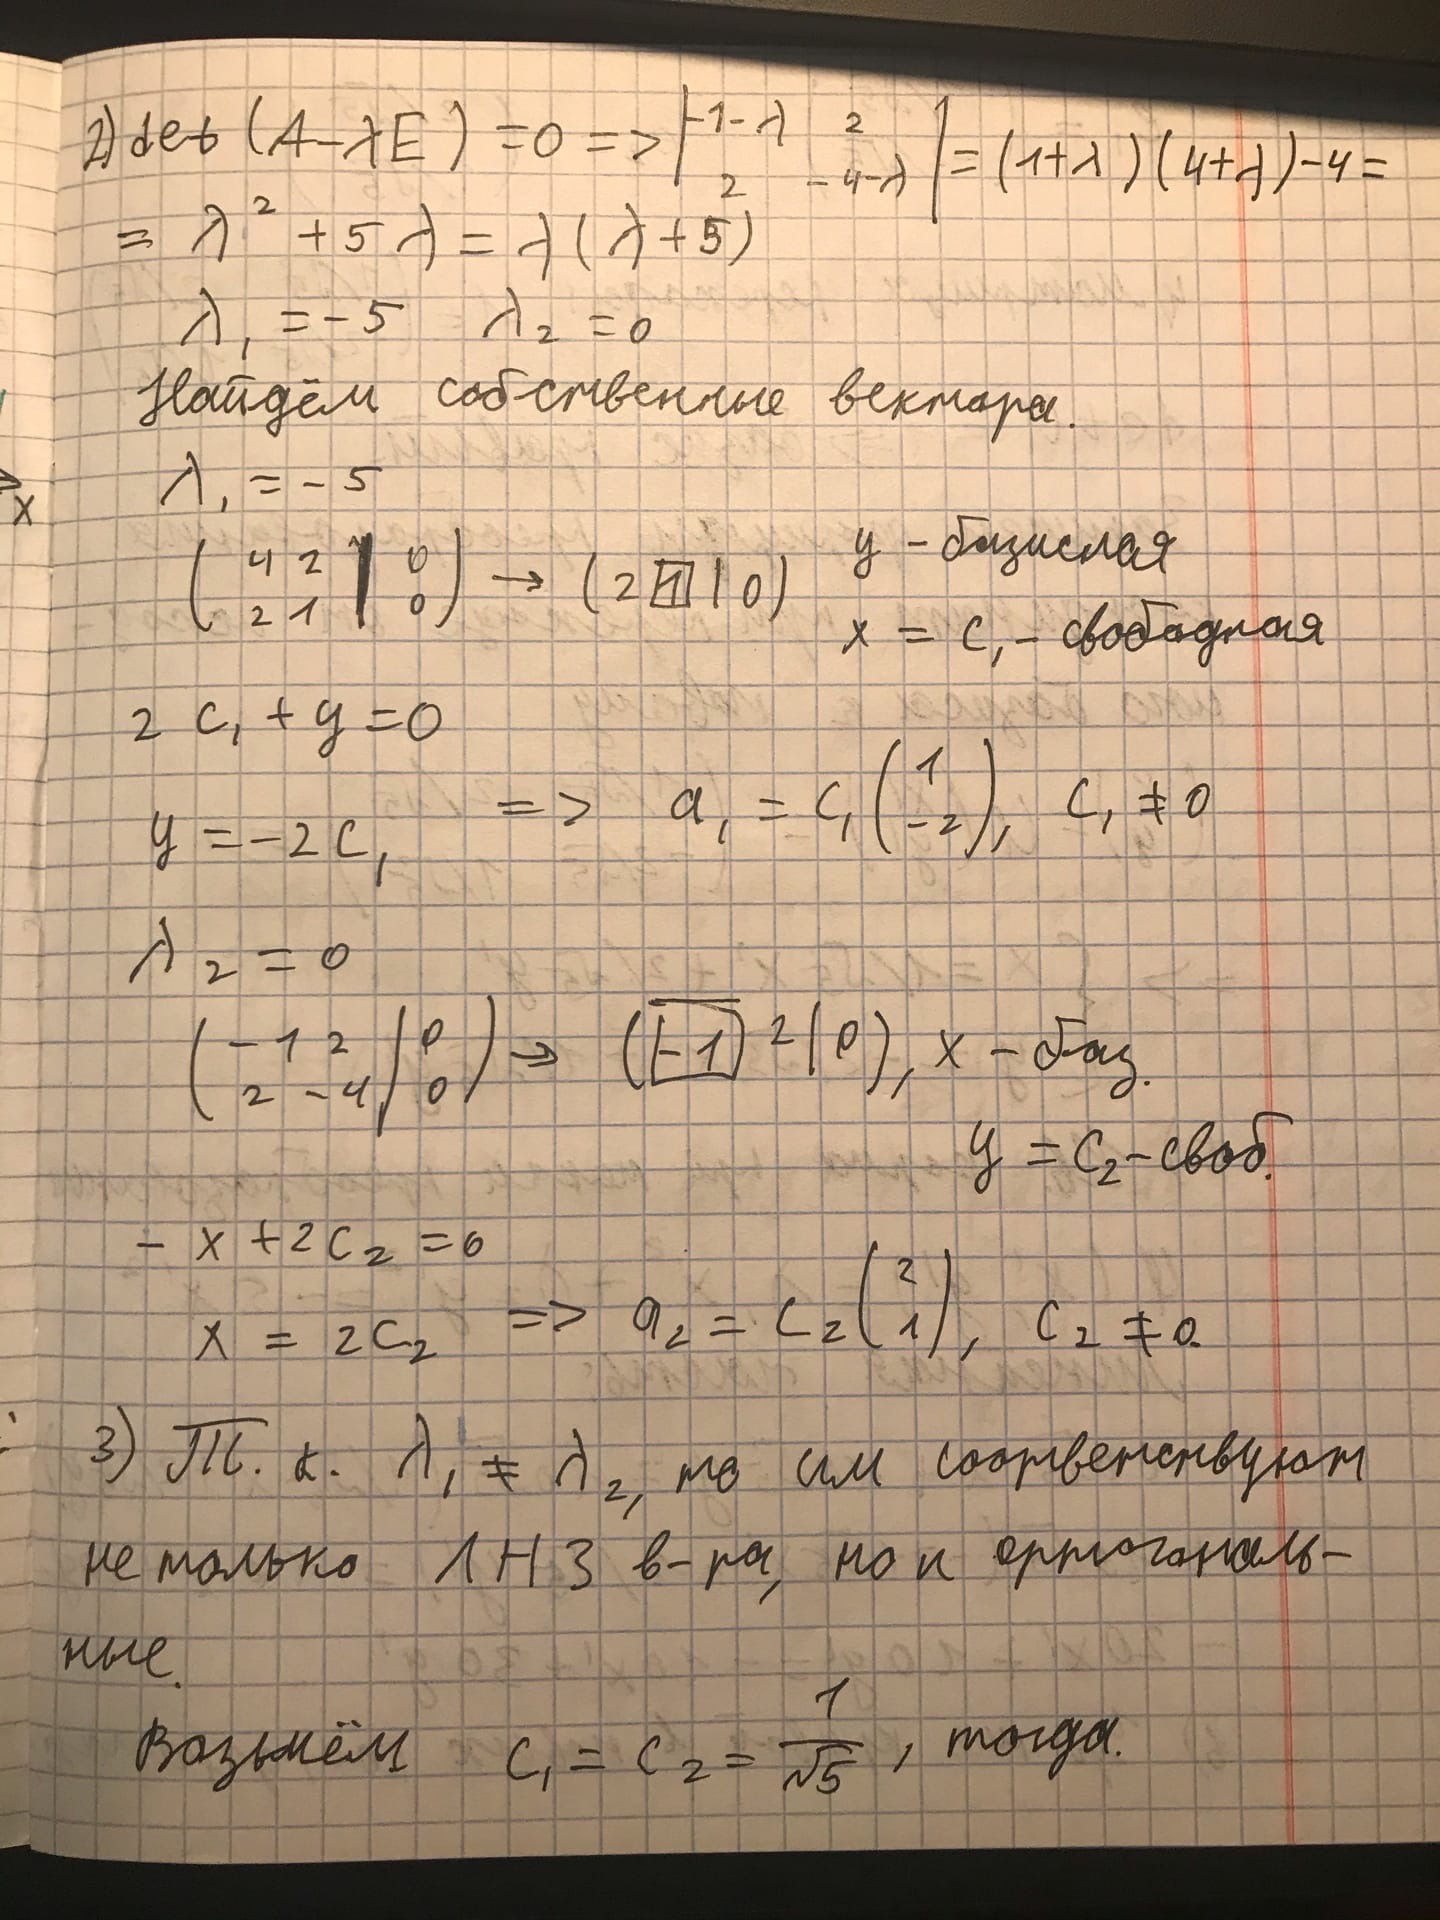 2) det (A-λE) =0 => |-1-λ 2
2 -4-λ| = (1+λ)(4+λ)-4=
= λ² + 5λ = λ(λ+5)
λ₁ = -5 λ₂ = 0
Найдём собственные вектора.
λ₁ = -5
(4 2 | 0
2 1 | 0) → (2 1 | 0) y - базисная
x = c₁ - свободная
2c₁ + y = 0
y = -2c₁ => a₁ = c₁(1
-2), c₁ ≠ 0
λ₂ = 0
(-1 2 | 0
2 -4 | 0) → (-1 2 | 0), x - баз.
y = c₂ - своб.
- x + 2c₂ = 0
x = 2c₂ => a₂ = c₂(2
1), c₂ ≠ 0.
3) Т. к. λ₁ ≠ λ₂, то им соответствуют
не только ЛНЗ в-ра, но и ортогональ-
ные.
Возьмём c₁ = c₂ = 1/√5, тогда.
x